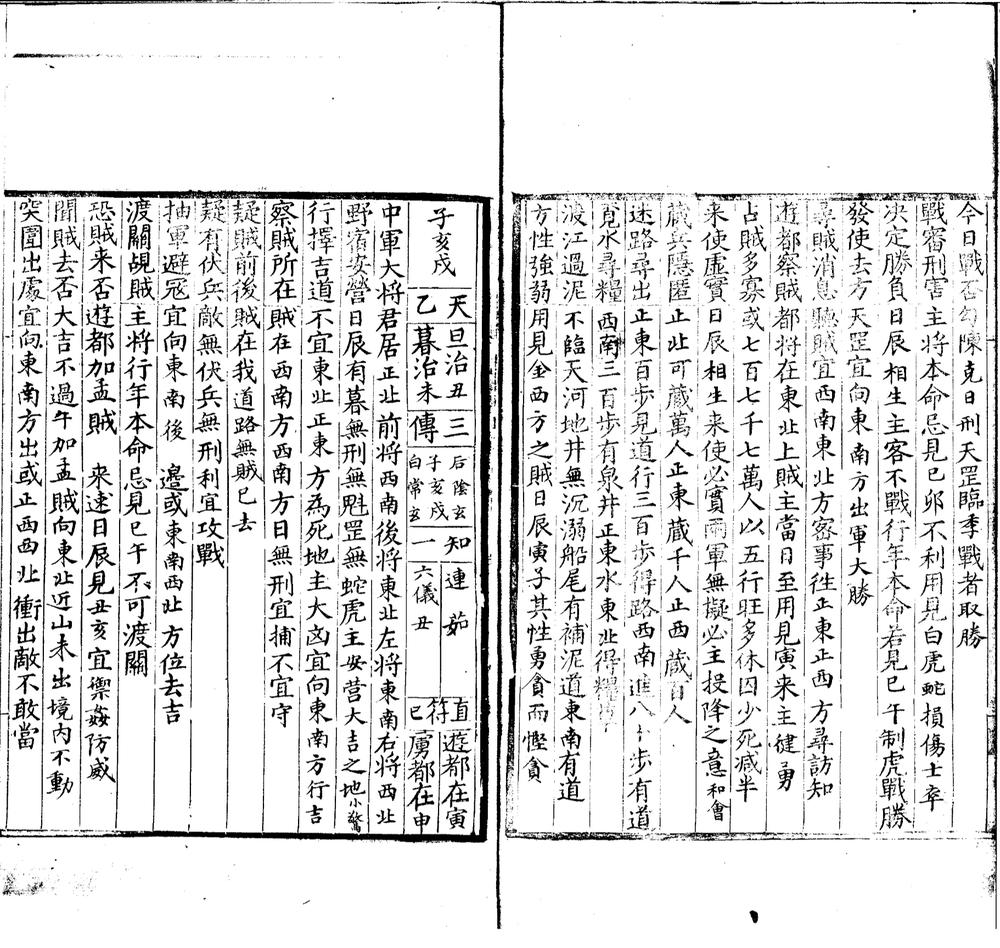 今日戰否勾陳克日刑天罡臨季戰者取勝
戰審刑害主將本命忌見巳卯不利用見白虎蛇損傷士卒
决定勝負日辰相生主客不戰行年本命若見巳午制虎戰勝
發使去方天罡宜向東南方出軍大勝
尋賊消息聽賊宜西南東北方密事往正東正西方尋訪知
遊都察賊都將在東北上賊主當日至用見寅來主健勇
占賊多寡或七百七千七萬人以五行旺多休囚少死减半
來使虛實日辰相生來使必實兩軍無擬必主投降之意和會
藏兵隱匿正北可藏萬人正東藏千人正西藏百人
迷路尋出正東百步見道行三百步得路西南進八十步有道
覓水尋糧西南三百步有泉井正東水東北得糧
渡江過泥不臨天河地井無沉溺船尾有補泥道東南有道
方性強弱用見金西方之賊日辰寅子其性勇貪而慳貪
子亥戌
天旦治丑
乙暮治未
三傳
后陰玄
子亥戌
白常玄
知一
連茹
六儀丑
直符巳
遊都在寅
虜都在申
中軍大將君居正北前將西南後將東北左將東南右將西北
野宿安營日辰有暮無刑無魁罡無蛇虎主安营大吉之地小驚
行擇吉道不宜東北正東方為死地主大凶宜向東南方行吉
察賊所在賊在西南方西南方日無刑宜捕不宜守
疑賊前後賊在我道路無賊已去
疑有伏兵敵無伏兵無刑利宜攻戰
抽軍避冦宜向東南後邉或東南西北方位去吉
渡關覘賊主將行年本命忌見巳午不可渡關
恐賊来否遊都加孟賊来速日辰見丑亥宜禦姦防威
聞賊去否大吉不過午加孟賊向東北近山未出境内不動
突圍出處宜向東南方出或正西西北衝出敵不敢當